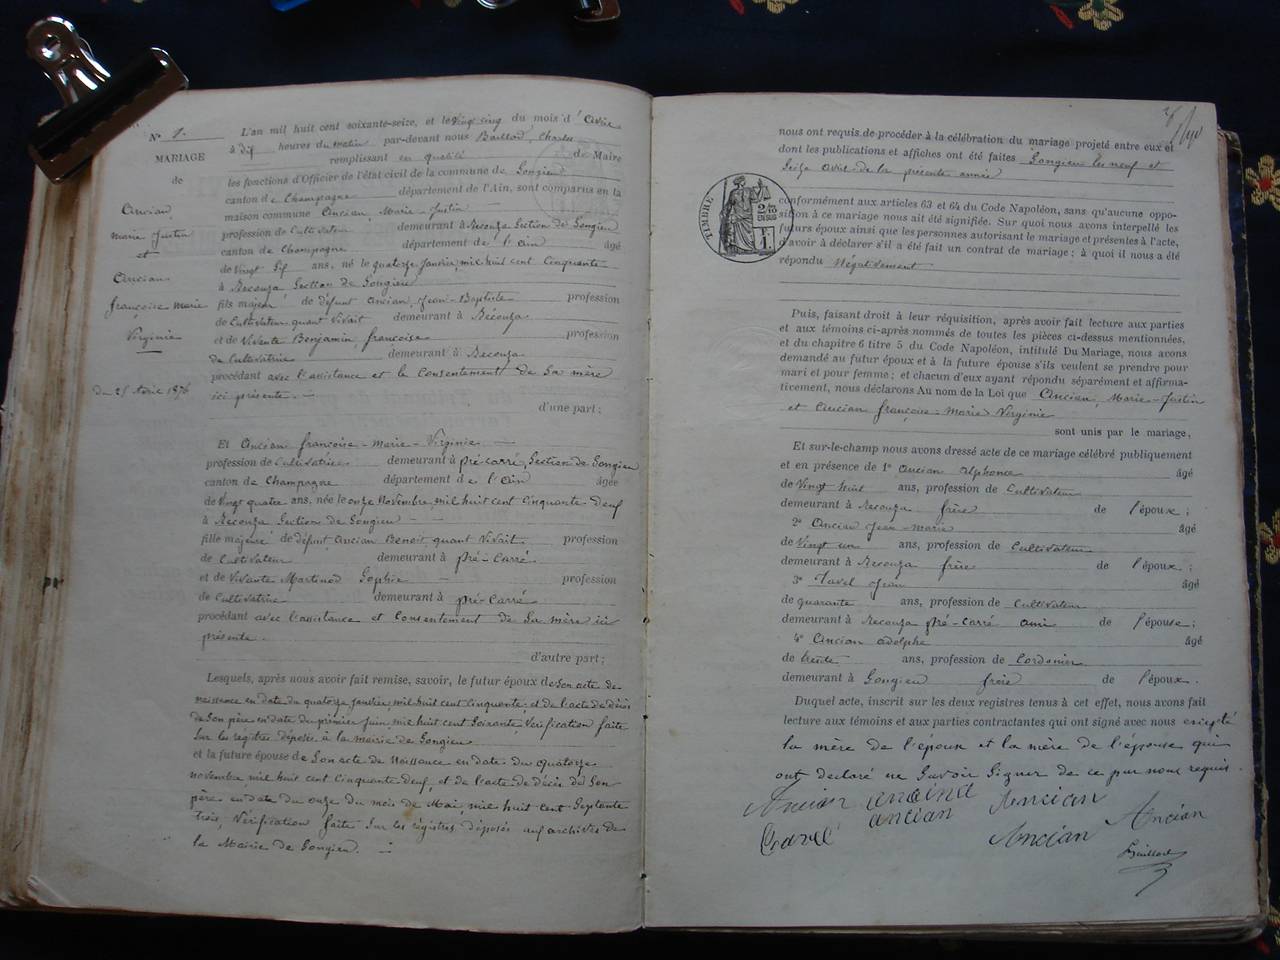 N° 1.
MARIAGE
de
Ancian,
marie Justin
et
Ancian
françoise Marie
Virginie
du 25 Avril 1876
L'an mil huit cent soixante-seize, et le vingt cinq du mois d'Avril
à dix heures du matin par-devant nous Baillod, Charles
remplissant en qualité de Maire
les fonctions d'Officier de l'état civil de la commune de Songieu
canton de Champagne département de l'Ain, sont comparus en la
maison commune Ancian, Marie-Justin
profession de Cultivateur demeurant à Reconza Section de Songieu
canton de Champagne département de l'Ain âgé
de Vingt Six ans, né le quatorze Janvier, mil huit cent Cinquante
à Reconza Section de Songieu
fils majeur de défunt Ancian, Jean-Baptiste profession
de Cultivateur quant Vivait demeurant à Réconza
et de Vivante Benjamin, françoise profession
de Cultivatrice demeurant à Reconza
procédant avec l'assistance et le Consentement de Sa mère
ici présente. —
d'une part;
Et Ancian françoise-Marie-Virginie —
profession de Cultivatrice demeurant à pré-carré, Section de Songieu
canton de Champagne département de l'Ain âgée
de Vingt quatre ans, née le onze Novembre, mil huit cent Cinquante deuf
à Reconza Section de Songieu — —
fille majeure de défunt Ancian Benoit quant Vivait profession
de Cultivateur demeurant à pré-Carré
et de Vivante Martinod Sophie — profession
de Cultivatrice demeurant à pré-Carré
procédant avec l'assistance et Consentement de Sa mère ici
présente.
d'autre part;
Lesquels, après nous avoir fait remise, savoir, le futur époux de Son acte de
naissance en date du quatorze Janvier, mil huit cent Cinquante; et de l'acte de décès
de Son père en date du premier Juin, mil huit cent Soixante, Vérification faite
Sur les registres déposés à la mairie de Songieu
et la future épouse de Son acte de Naissance en date du quatorze
novembre, mil huit cent Cinquante deuf, et de l'acte de décès de Son
père en date du onze du mois de Mai, mil huit cent Septante
trois, Vérification faite Sur les registres déposés aux archives de
la Mairie de Songieu. —
nous ont requis de procéder à la célébration du mariage projeté entre eux et
dont les publications et affiches ont été faites Songieu les neuf et
Seize avril de la présente année
TIMBRE
2 10es
EN SUS
1 F.
conformément aux articles 63 et 64 du Code Napoléon, sans qu'aucune oppo-
sition à ce mariage nous ait été signifiée. Sur quoi nous avons interpellé les
futurs époux ainsi que les personnes autorisant le mariage et présentes à l'acte,
d'avoir à déclarer s'il a été fait un contrat de mariage; à quoi il nous a été
répondu Négativement
Puis, faisant droit à leur réquisition, après avoir fait lecture aux parties
et aux témoins ci-après nommés de toutes les pièces ci-dessus mentionnées,
et du chapitre 6 titre 5 du Code Napoléon, intitulé Du Mariage, nous avons
demandé au futur époux et à la future épouse s'ils veulent se prendre pour
mari et pour femme; et chacun d'eux ayant répondu séparément et affirma-
tivement, nous déclarons Au nom de la Loi que Ancian, Marie-Justin
et Ancian françoise-Marie Virginie
sont unis par le mariage,
Et sur-le-champ nous avons dressé acte de ce mariage célébré publiquement
et en présence de 1° Ancian Alphonse âgé
de Vingt huit ans, profession de Cultivateur
demeurant à Reconza frère de l'époux;
2° Ancian Jean-Marie âgé
de Vingt un ans, profession de Cultivateur
demeurant à Reconza frère de l'époux;
3° Tavel Jean âgé
de quarante ans, profession de Cultivateur
demeurant à Reconza pré-carré ami de l'épouse;
4° Ancian adolphe âgé
de trente ans, profession de Cordonier
demeurant à Songieu frère de l'époux.
Duquel acte, inscrit sur les deux registres tenus à cet effet, nous avons fait
lecture aux témoins et aux parties contractantes qui ont signé avec nous excepté
la mère de l'époux et la mère de l'épouse qui
ont declaré ne Savoir Signer de ce par nous requis.
Ancian Ancian
Ancian Ancian Ancian
Baillod